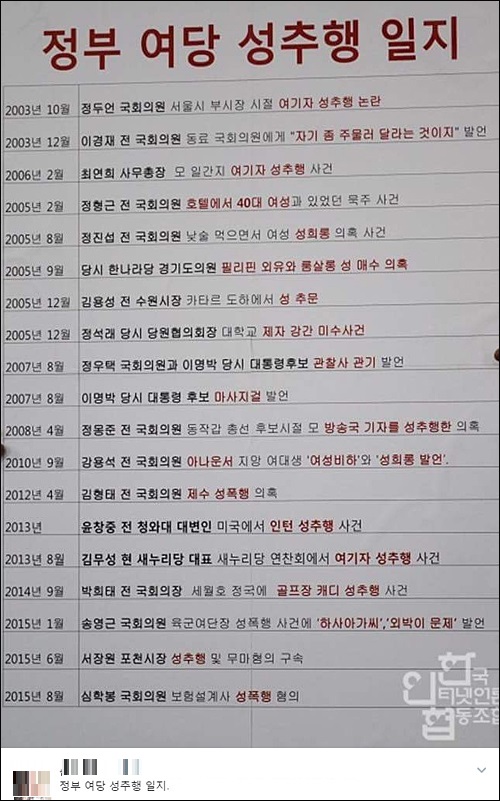 정부 여당 성추행 일지
2003년 10월 정두언 국회의원 서울시 부시장 시절 여기자 성추행 논란
2003년 12월 이경재 전 국회의원 동료 국회의원에게 "자기 좀 주물러 달라는 것이지" 발언
2006년 2월 최연희 사무총장 모 일간지 여기자 성추행 사건
2005년 2월 정형근 전 국회의원 호텔에서 40대 여성과 있었던 묵주 사건
2005년 8월 정진섭 전 국회의원 낮술 먹으면서 여성 성희롱 의혹 사건
2005년 9월 당시 한나라당 경기도의원 필리핀 외유와 룸살롱 성 매수 의혹
2005년 12월 김용성 전 수원시장 카타르 도하에서 성 추문
2005년 12월 정석래 당시 당원협의회장 대학교 제자 강간 미수사건
2007년 8월 정우택 국회의원과 이명박 당시 대통령후보 관찰사 관기 발언
2007년 8월 이명박 당시 대통령 후보 마사지걸 발언
2008년 4월 정몽준 전 국회의원 동작갑 총선 후보시절 모 방송국 기자를 성추행한 의혹
2010년 9월 강용석 전 국회의원 아나운서 지망 여대생 '여성비하'와 '성희롱 발언'.
2012년 4월 김형태 전 국회의원 제수 성폭행 의혹
2013년 윤창중 전 청와대 대변인 미국에서 인턴 성추행 사건
2013년 8월 김무성 현 새누리당 대표 새누리당 연찬회에서 여기자 성추행 사건
2014년 9월 박희태 전 국회의장 세월호 정국에 골프장 캐디 성추행 사건
2015년 1월 송영근 국회의원 육군여단장 성폭행 사건에 '하사아가씨','외박이 문제' 발언
2015년 6월 서장원 포천시장 성추행 및 무마혐의 구속
2015년 8월 심학봉 국회의원 보험설계사 성폭행 혐의
한국
인터넷언론
협동조합
정부 여당 성추행 일지.